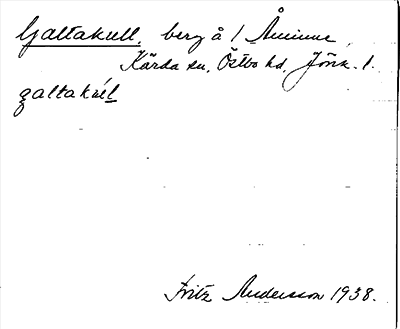 Galtakull, berg å 1 Åminne,
Kärda sn, Östbo hd, Jönk. l.
galtakúl
Fritz Andersson 1938.